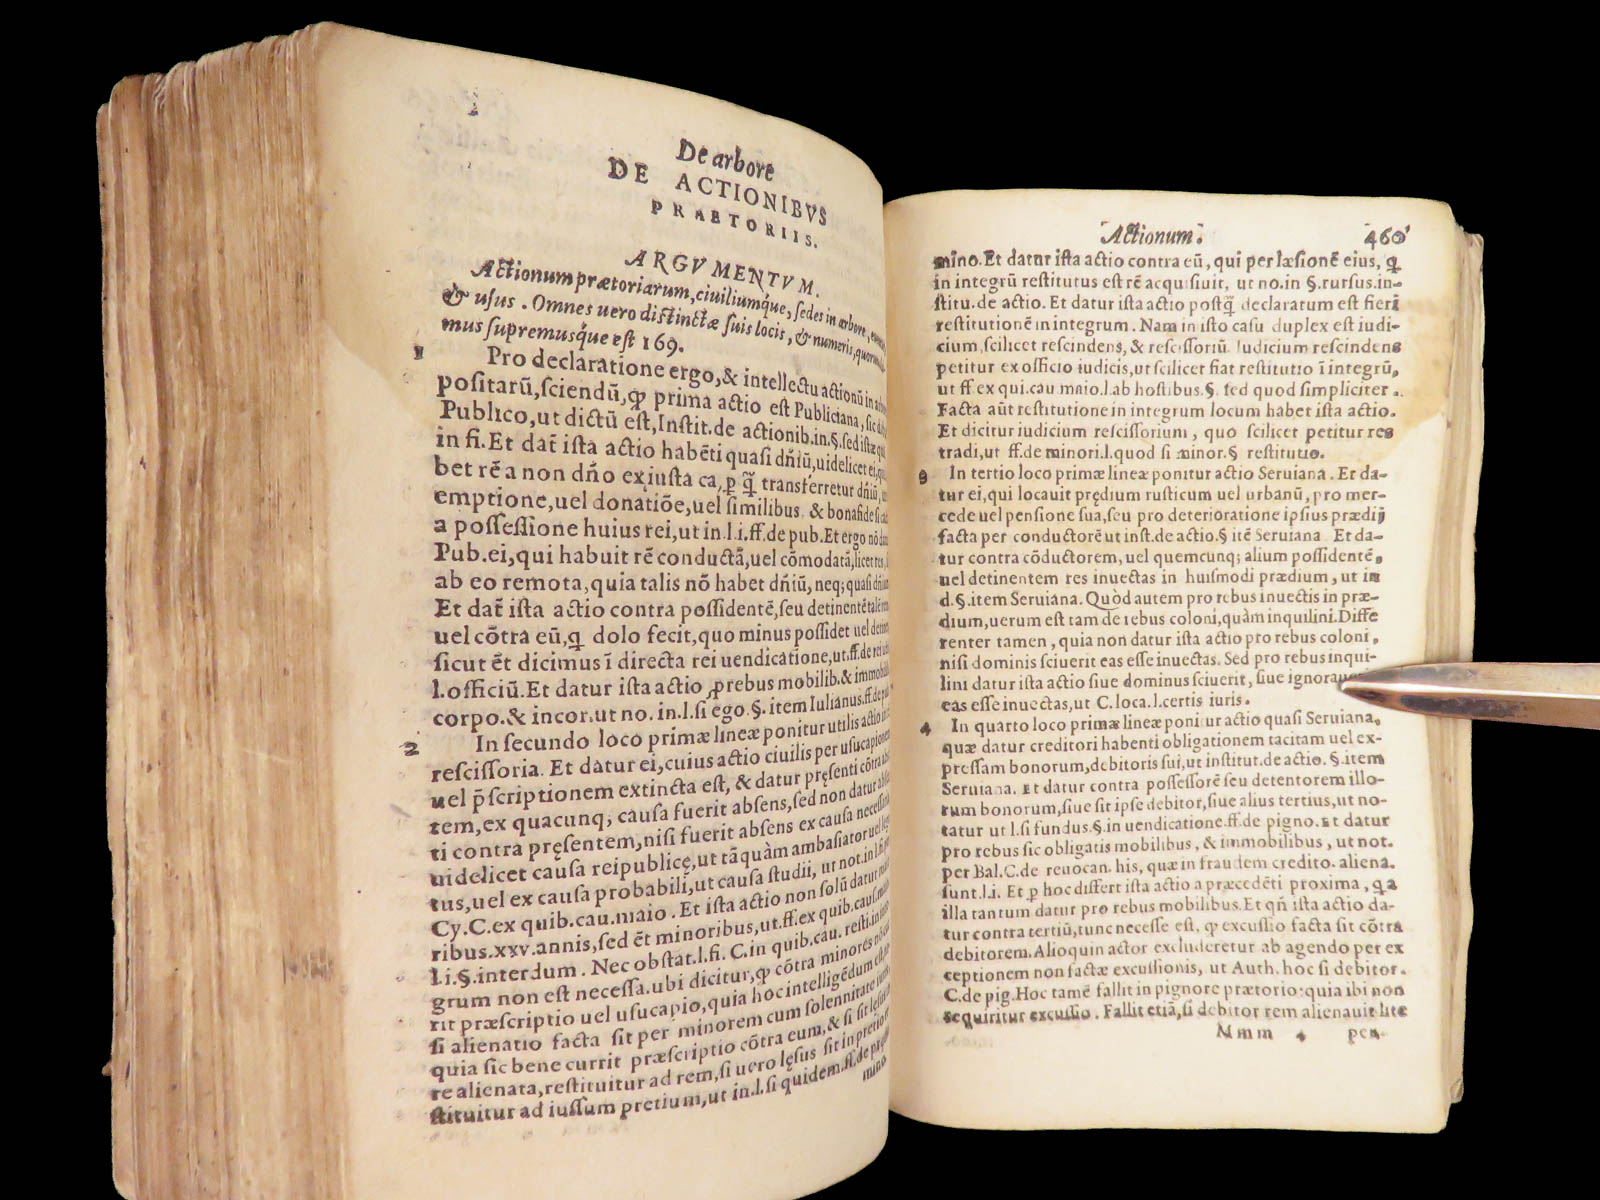 De arbore
DE ACTIONIBVS
PRAETORIIS.
ARGVMENTVM.
Actionum prætoriarum, ciuiliumq́ue, sedes in arbore,
& usus. Omnes uero distinctæ suis locis, & numeris, quorum
mus supremusq́ue est 169.
1 Pro declaratione ergo, & intellectu actionū in
positarū, sciendū, ꝙ prima actio est Publiciana, sic
Publico, ut dictū est, Instit. de actionib. in. §. sed istæ
in fi. Et daŧ ista actio habēti quasi dñiū, uidelicet ei,
bet rē a non dño ex iusta ca, ꝑ q̃ transferretur dñiū,
emptione, uel donatiōe, uel similibus. & bona fide
a possessione huius rei, ut in. l. i. ff. de pub. Et ergo nō
Pub. ei, qui habuit rē conductā, uel cōmodatā, licet res,
ab eo remota, quia talis nō habet dñiū, neq; quasi
Et daŧ ista actio contra possidentē, seu detinentē
uel cōtra eū, q dolo fecit, quo minus possidet uel
sicut ēt dicimus ī directa rei uendicatione, ut. ff. de rei
l. officiū. Et datur ista actio ꝓ rebus mobilib. &
corpo. & incor. ut no. in. l. si ego. §. item Iulianus. ff. de
2 In secundo loco primæ lineæ ponitur utilis actio
rescissoria. Et datur ei, cuius actio ciuilis per usucapionem
uel p̄scriptionem extincta est, & datur pręsenti cōtra
tem, ex quacunq; causa fuerit absens, sed non datur
ti contra pręsentem, nisi fuerit absens ex causa
uidelicet causa reipublicę, ut tāquàm ambasiator uel
tus, uel ex causa probabili, ut causa studii, ut not. in. l. fi.
Cy. C. ex quib. cau. maio. Et ista actio non solū datur
ribus. xxv. annis, sed ēt minoribus, ut. ff. ex quib. caus.
l. i. §. interdum. Nec obstat. l. fi. C. in quib. cau. resti. in
grum non est necessa. ubi dicitur, ꝙ cōtra minores nō
rit præscriptio uel usucapio, quia hoc intelligēdum est,
si alienatio facta sit per minorem cum solennitate
quia sic bene currit præscriptio cōtra eum, & si sit
re alienata, restituitur ad rem, si uero lęsus sit in pretio
stituitur ad iussum pretium, ut in. l. si quidem. ff. de
mino
Actionum. 460
mino. Et datur ista actio contra eū, qui per læsionē eius, q
in integrū restitutus est rē acquisiuit, ut no. in §. rursus. in-
stitu. de actio. Et datur ista actio postq̃ declaratum est fieri
restitutionē in integrum. Nam in isto casu duplex est iudi-
cium, scilicet rescindens, & rescissoriū. Iudicium rescindens
petitur ex officio iudicis, ut scilicet fiat restitutio ī integrū,
ut ff ex qui. cau maio. l. ab hostibus. §. sed quod simpliciter.
Facta aūt restitutione in integrum locum habet ista actio.
Et dicitur iudicium rescissorium, quo scilicet petitur res
tradi, ut ff. de minori. l. quod si minor. § restitutio.
3 In tertio loco primæ lineæ ponitur actio Seruiana. Et da-
tur ei, qui locauit prędium rusticum uel urbanū, pro mer-
cede uel pensione sua, seu pro deterioratione ipsius prædij
facta per conductorē ut inst. de actio. § itē Seruiana. Et da-
tur contra cōductorem, uel quemcunq; alium possidentē,
uel detinentem res inuectas in huismodi prædium, ut in
d. §. item Seruiana. Quòd autem pro rebus inuectis in præ-
dium, uerum est tam de rebus coloni, quàm inquilini. Diffe
renter tamen, quia non datur ista actio pro rebus coloni,
nisi dominis sciuerit eas esse inuectas. Sed pro rebus inqui-
lini datur ista actio siue dominus sciuerit, siue
eas esse inuectas, ut C. loca. l. certis iuris.
4 In quarto loco primæ lineæ ponitur actio quasi Seruiana,
quæ datur creditori habenti obligationem tacitam uel ex-
pressam bonorum, debitoris sui, ut institut. de actio. §. item
Seruiana. Et datur contra possessorē seu detentorem illo-
rum bonorum, siue sit ipse debitor, siue alius tertius, ut no-
tatur ut l. si fundus. §. in uendicatione. ff. de pigno. Et datur
pro rebus sic obligatis mobilibus, & immobilibus, ut not.
per Bal. C. de reuocan. his, quæ in fraudem credito. aliena.
sunt. l. i. Et ꝑ hoc differt ista actio a præcedēti proxima, q a
illa tantum datur pro rebus mobilibus. Et qñ ista actio da-
tur contra tertiū, tunc necesse est, ꝙ excussio facta sit cōtra
debitorem. Alioquin actor excluderetur ab agendo per ex
ceptionem non factæ excussionis, ut Auth. hoc si debitor.
C. de pig. Hoc tamē fallit in pignore prætorio: quia ibi non
sequiritur excussio. Fallit etiā, si debitor rem alienauit lite
Mmm 4 pen